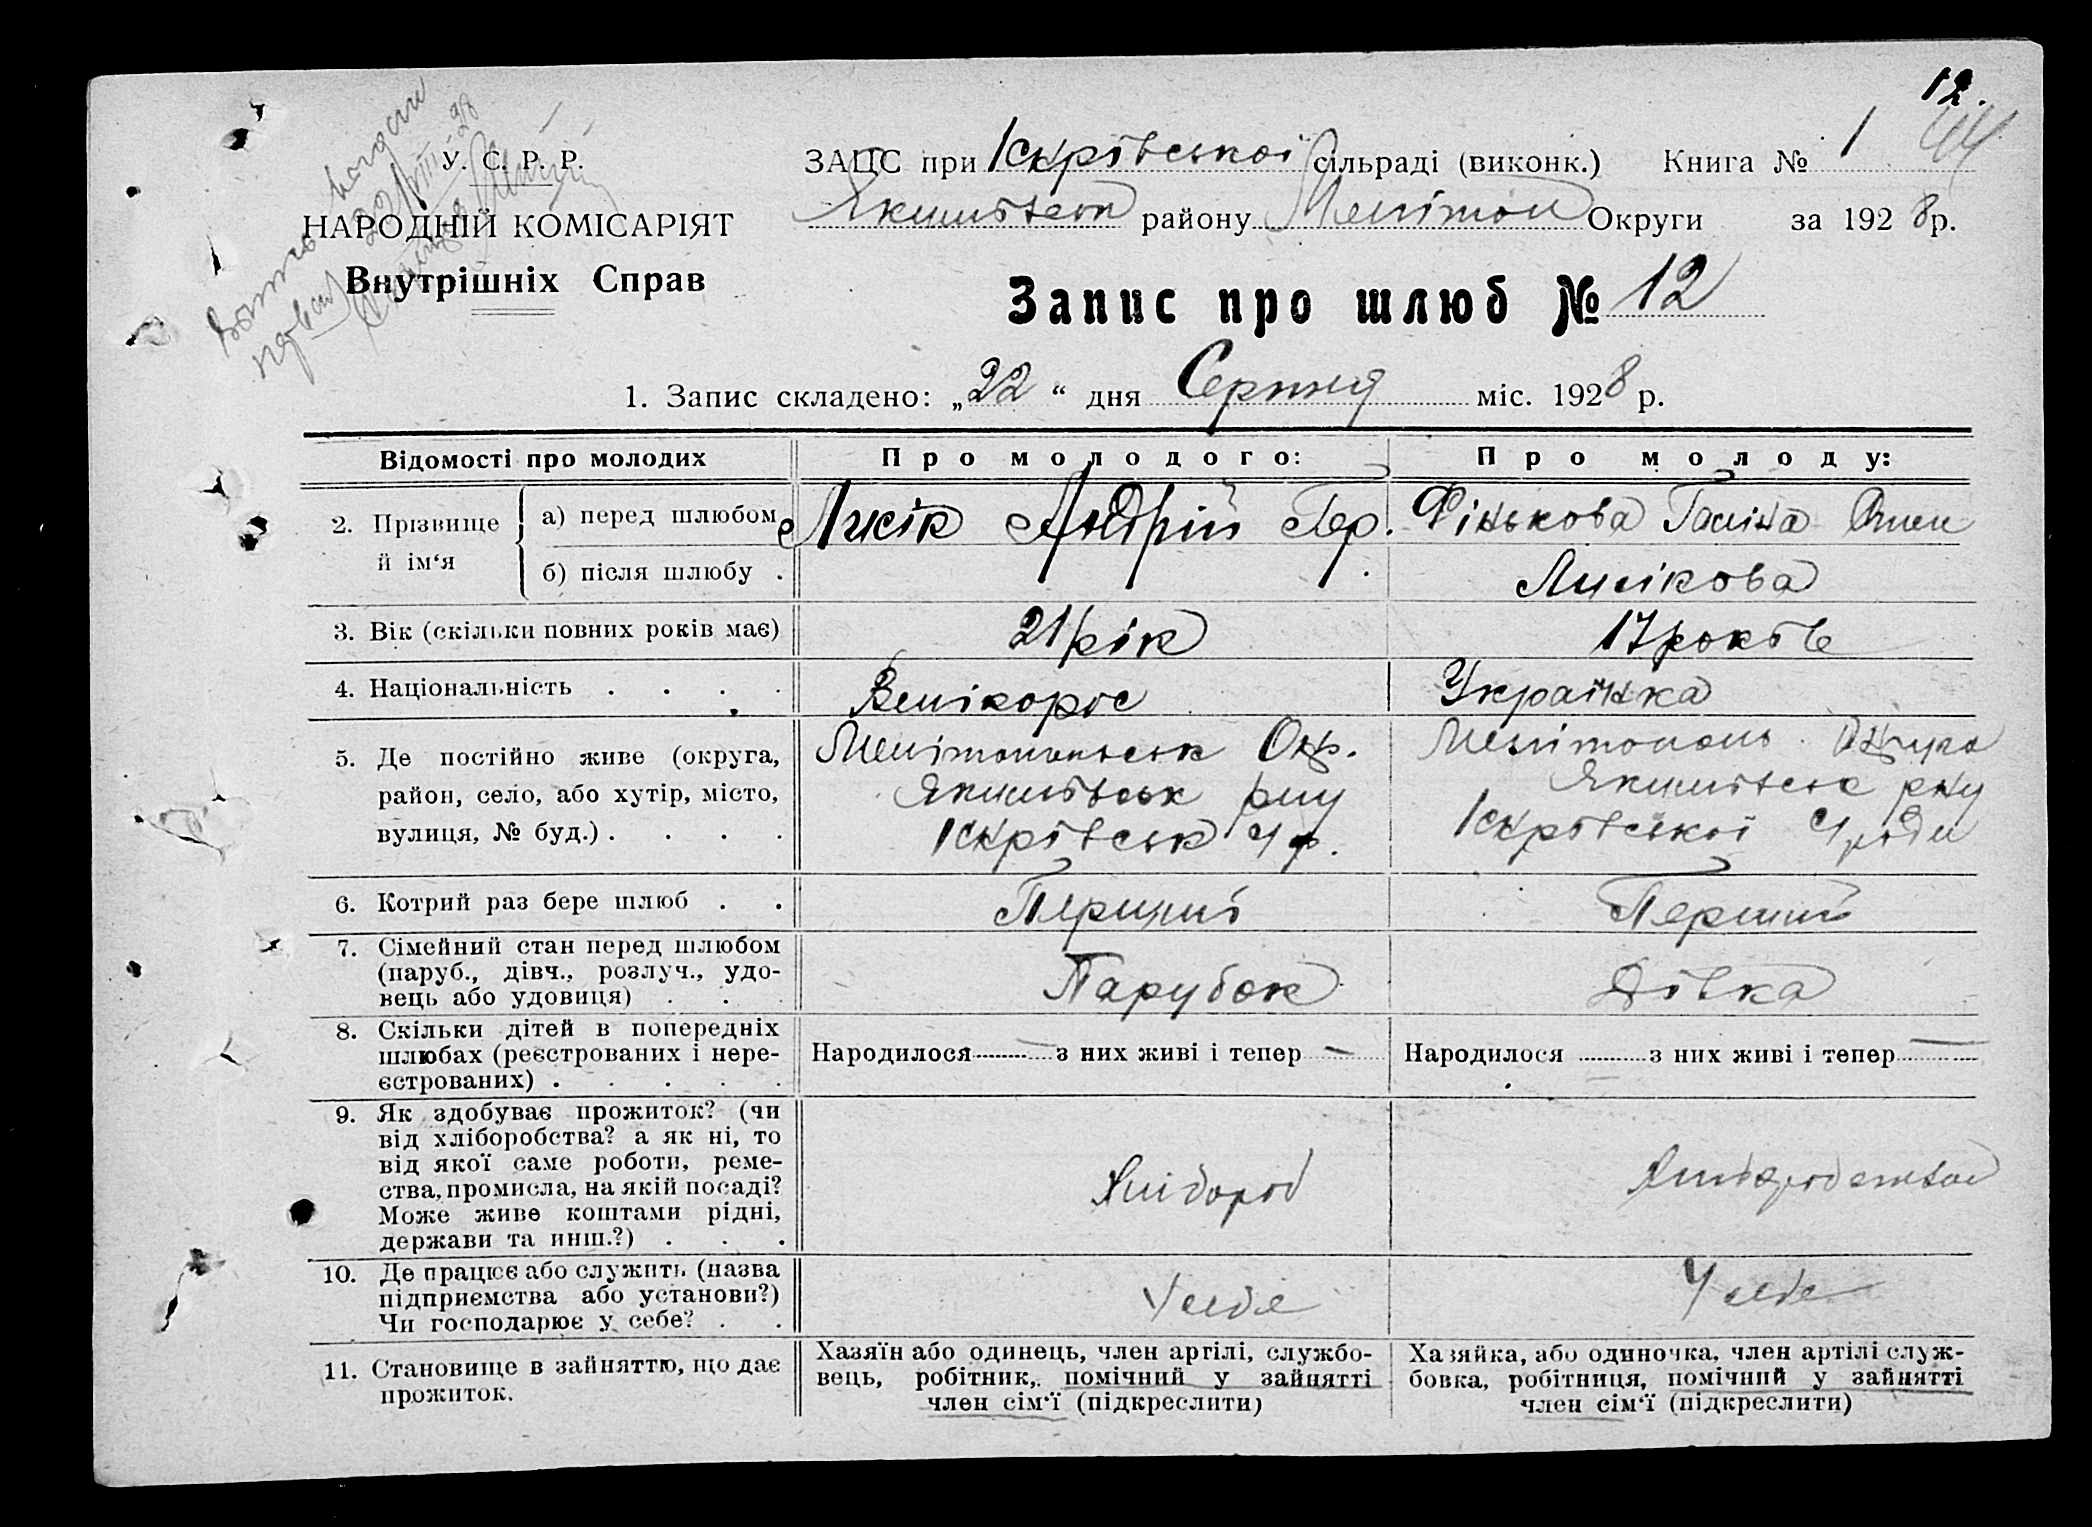 12.
У. С. Р. Р.
НАРОДНІЙ КОМІСАРІЯТ
Внутрішніх Справ
ЗАЦС при Іскрівської сільраді (виконк.) Книга № 1 44
Якимівськ району Мелітоп Округи за 1928 р.
Запис про шлюб № 12
1. Запис складено: „22“ дня Серпня міс. 1928 р.
Відомості про молодих
Про молодого:
Про молоду:
2. Прізвище й ім‘я
а) перед шлюбом
Лисік Андрій Гер.
Фінькова Галіна
б) після шлюбу .
Лисікова
3. Вік (скільки повних років має)
21 рік
17 років
4. Національність . . . .
Велікорос
Українка
5. Де постійно живе (округа,
район, село, або хутір, місто,
вулиця, № буд.) . . . .
Мелітопольськ Окр.
Якимівськ рну
Іскрівськ с/р.
Мелітополь Округа
Якимівськ рну
Іскрівської с/ради
6. Котрий раз бере шлюб . .
Перший
Перший
7. Сімейний стан перед шлюбом
(паруб., дівч., розлуч., удо-
вець або удовиця) . . .
Парубок
Дівка
8. Скільки дітей в попередніх
шлюбах (реєстрованих і нере-
єстрованих) . . . . .
Народилося — з них живі і тепер —
Народилося — з них живі і тепер —
9. Як здобуває прожиток? (чи
від хліборобства? а як ні, то
від якої саме роботи, реме-
ства, промисла, на якій посаді?
Може живе коштами рідні,
держави та инш.?) . . .
Хлібороб
Хліборобством
10. Де працює або служить (назва
підприємства або установи?)
Чи господарює у себе? . .
У себе
У себе
11. Становище в зайняттю, що дає
прожиток.
Хазяїн або одинець, член артілі, службо-
вець, робітник, помічний у зайнятті
член сім‘ї (підкреслити)
Хазяйка, або одиночка, член артілі служ-
бовка, робітниця, помічний у зайнятті
член сім‘ї (підкреслити)